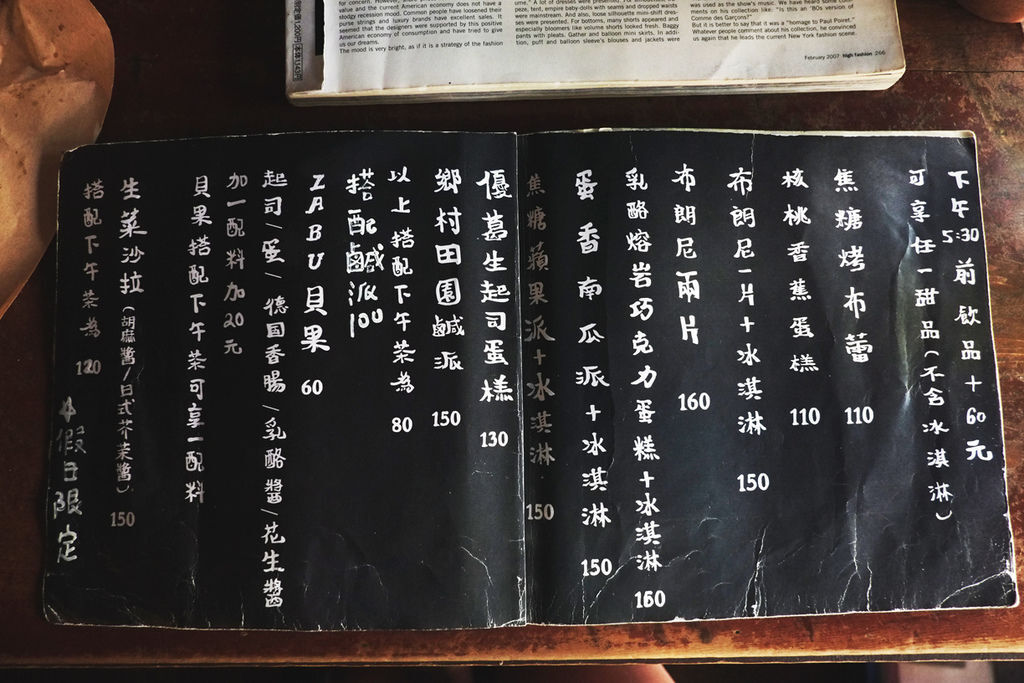 for concern. However, many brands have
and the current American economy does not have a
stodgy recession mood. Common people have loosened their
purse strings and luxury brands have excellent sales. It
seemed that the designers were supported by this positive
American economy of consumption and have tried to give
us our dreams.
The mood is very bright, as if it is a strategy of the fashion
time." A lot of dresses were presented.
tent, empire baby-dolls with seams and dropped waists
were mainstream. And also, loose silhouette mini-shift dress-
es were presented. For bottoms, many shorts appeared and
especially bloomers like volume shorts looked fresh. Baggy
pants with pleats. Gather and balloon mini skirts. In addi-
tion, puff and balloon sleeve's blouses and jackets were
was used as the show's music. We have heard some com-
ments on his collection like: "Is this an '80s version of
Comme des Garçons?"
But it is better to say that it was a "homage to Paul Poiret."
Whatever people comment about his collection, he convinced
us again that he leads the current New York fashion scene.
February 2007 high fashion 266
下午5:30前飲品+60元
可享任一甜品(不含冰淇淋)
焦糖烤布蕾 110
核桃香蕉蛋糕 110
布朗尼一片+冰淇淋 150
布朗尼兩片 160
乳酪熔岩巧克力蛋糕+冰淇淋 160
蛋香南瓜派+冰淇淋 150
焦糖蘋果派+冰淇淋 150
優葛生起司蛋糕 130
鄉村田園鹹派 150
以上搭配下午茶為 80
搭配鹹派100
ZABU貝果 60
起司/蛋/德国香腸/乳酪醬/花生醬
加一配料加20元
貝果搭配下午茶可享一配料
生菜沙拉(胡麻醬/日式芥茉醬) 150
搭配下午茶為 120
假日限定